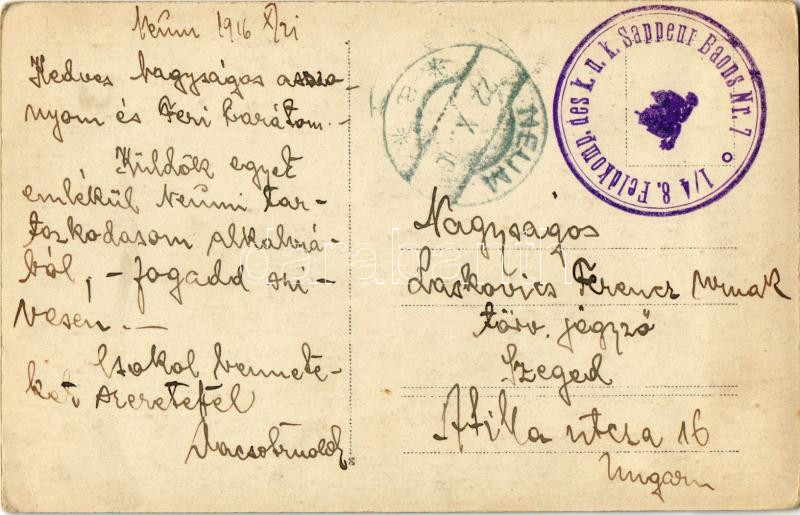 Neum 1916 X/21
Kedves Nagyságos asszo-
nyom és Feri barátom.-
Küldök egyet
emlékül Neumi tar-
tozkodasom alkalmá-
ból, - fogadd szi-
vesén. -
Csokol bennete-
ket szeretettel
NEUM
22. X.
1/4 8. Feldkomp. des k. u. k. Sappeur Baons Nr. 7
Nagyságos
Laskovics Ferencz urnak
törv. jegyző
Szeged
Attilla utcza 16
Ungarn
darabanth